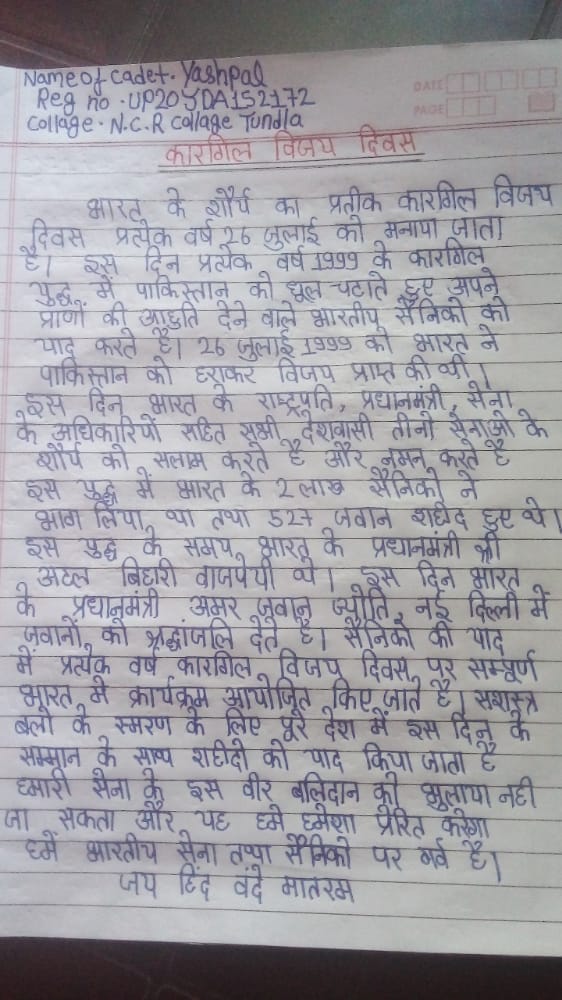 Name of cadet. Yashpal
Reg no. UP20SDA152172
Collage. N.C.R Collage Tundla
DATE
PAGE
कारगिल विजय दिवस
भारत के शौर्य का प्रतीक कारगिल विजय
दिवस प्रत्येक वर्ष 26 जुलाई को मनाया जाता
है। इस दिन प्रत्येक वर्ष 1999 के कारगिल
युद्ध में पाकिस्तान को धूल चटाते हुए अपने
प्राणों की आहुति देने वाले भारतीय सैनिको को
याद करते है। 26 जुलाई 1999 को भारत ने
पाकिस्तान को हराकर विजय प्राप्त की थी।
इस दिन भारत के राष्ट्रपति, प्रधानमंत्री, सेना
के अधिकारियों सहित सभी देशवासी तीनो सेनाओ के
शौर्य को सलाम करते है और नमन करते है
इस युद्ध में भारत के 2 लाख सैनिको ने
भाग लिया था तथा 527 जवान शहीद हुए थे।
इस युद्ध के समय भारत के प्रधानमंत्री श्री
अटल बिहारी वाजपेयी थे। इस दिन भारत
के प्रधानमंत्री अमर जवान ज्योति, नई दिल्ली में
जवानों को श्रद्धांजलि देते है। सैनिको की याद
में प्रत्येक वर्ष कारगिल विजय दिवस पर सम्पूर्ण
भारत में कार्यक्रम आयोजित किए जाते है। सशस्त्र
बलो के स्मरण के लिए पूरे देश में इस दिन के
सम्मान के साथ शहीदो को याद किया जाता है
हमारी सेना के इस वीर बलिदान को भुलाया नही
जा सकता और यह हमे हमेशा प्रेरित करेगा
हमें भारतीय सेना तथा सैनिको पर गर्व है।
जय हिंद वंदे मातरम